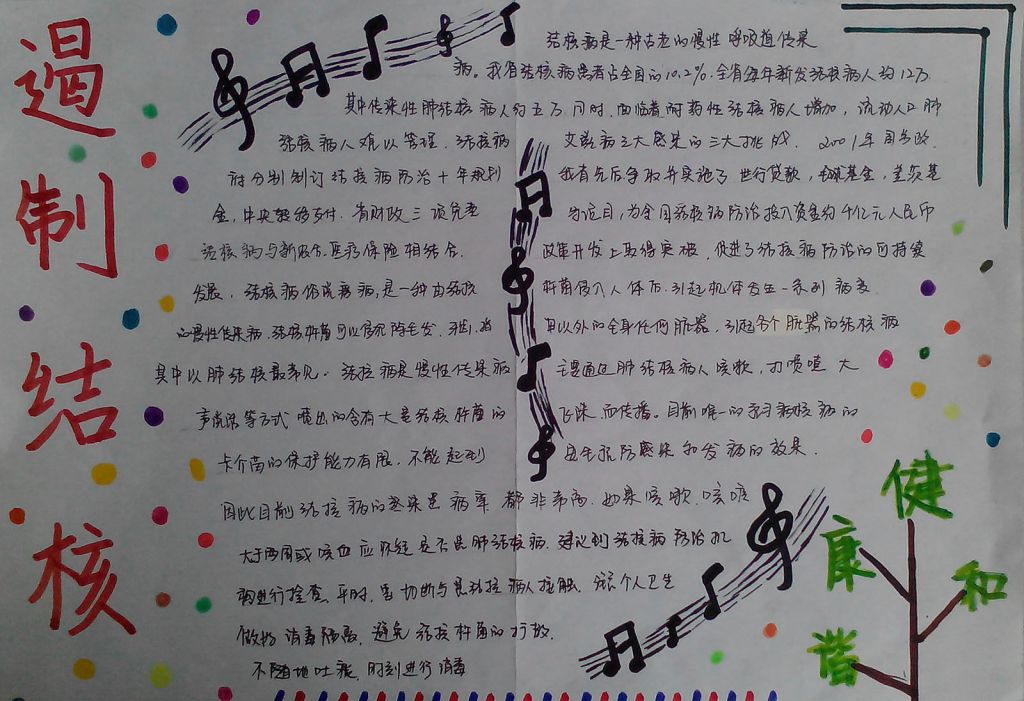 遏制结核
结核病是一种古老的慢性呼吸道传染
病。我省结核病患者占全国的10.2%.全省每年新发结核病人约12万
其中传染性肺结核病人约五万 同时,面临着耐药性结核病人增加,流动人口肺
结核病人难以管理.结核病 双重感染的三大挑战. 2001年
制订结核病防治十年规划 我省先后争取并实施了世行贷款,全球基金,
金,中央转移支付.省财政三项 项目,为全国结核病防治投入资金约 亿元人民币
结核病与新农合.医疗保险相结合. 改革开发上取得突破,促进了结核病防治的可持续
发展.结核病俗称痨病,是一种由结核 杆菌侵入人体后.引起机体发生一系列病变
的慢性传染病.结核杆菌可以侵犯除毛发. 以外的全身任何脏器,引起各个脏器的结核病
其中以肺结核最常见.结核病是慢性传染病 主要通过肺结核病人咳嗽,打喷嚏 大
声说话等方式 喷出的含有大量结核杆菌的 飞沫而传播。目前唯一的 病的
卡介苗的保护能力有限.不能起到 预防感染和发病的效果.
因此目前结核病的感染 病率都非常高.如果咳嗽.咳痰
大于两周或咳血应怀疑是否患肺结核病.建议到结核病防治机
构进行检查.平时. 切断与 结核病人接触. 个人卫生
做好消毒隔离.避免结核杆菌的扩散.
不随地吐痰,时刻进行消毒
健康
和谐